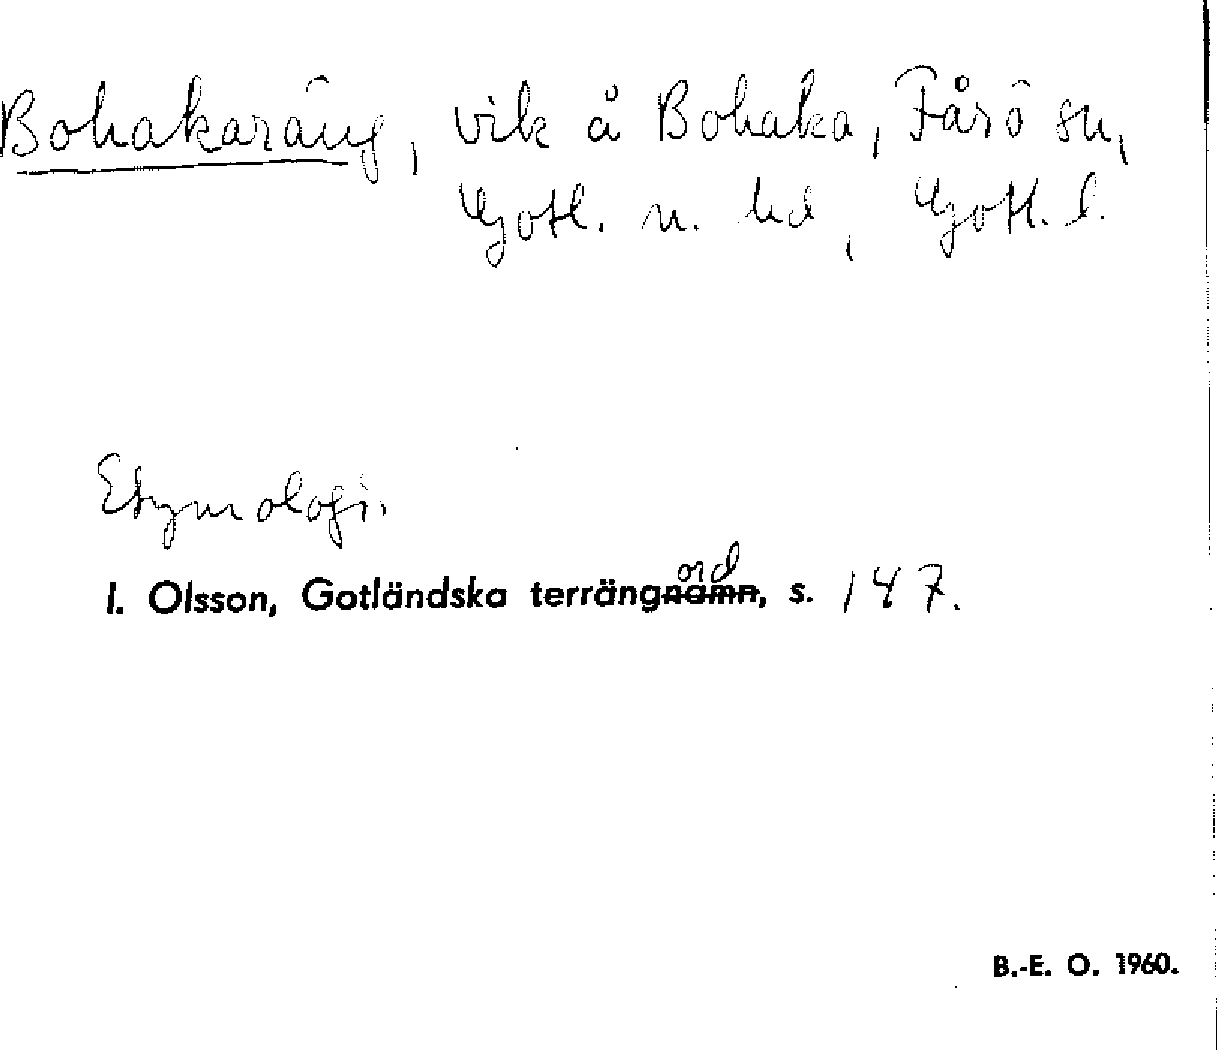 Bohakaräng, vik å Bohaka, Fårö sn,
Gotl. n. hd, Gotl. l.
Etymologi.
ord
I. Olsson, Gotländska terrängnamn, s. 147.
B.-E. O. 1960.